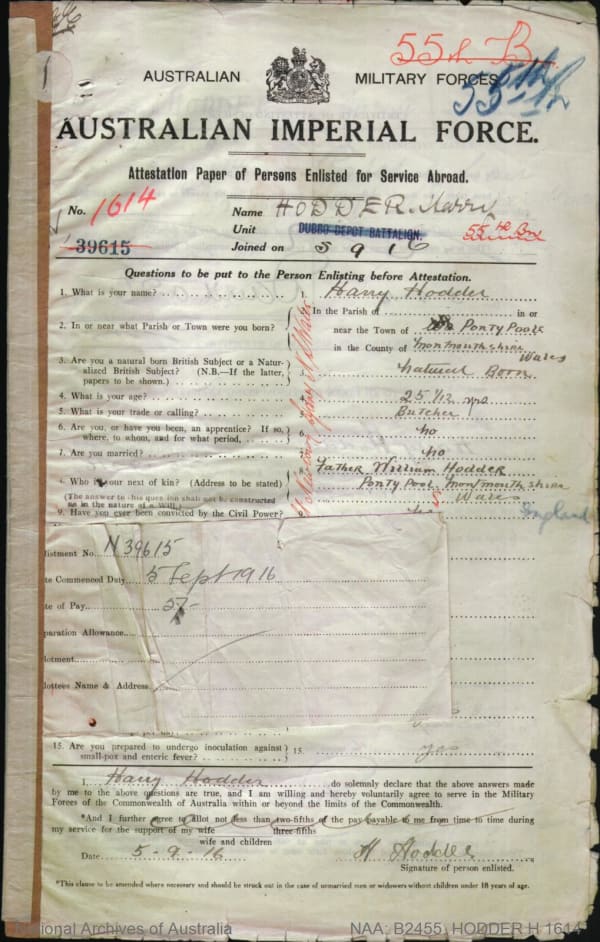 55th B
55th
AUSTRALIAN MILITARY FORCES
AUSTRALIAN IMPERIAL FORCE.
Attestation Paper of Persons Enlisted for Service Abroad.
No. 1614
39615
Name HODDER. Harry
Unit DUBBO DEPOT BATTALION.
Joined on 5 9 16
Questions to be put to the Person Enlisting before Attestation.
1. What is your name? Harry Hodder
2. In or near what Parish or Town were you born?
In the Parish of in or
near the Town of Ponty Pool
in the County of Monmouthshire
Wales
3. Are you a natural born British Subject or a Natur-
alized British Subject? (N.B.—If the latter,
papers to be shown.)
3. Natural Born
4. What is your age? 4. 25 1/12 yrs
5. What is your trade or calling? 5. Butcher
6. Are you, or have you been, an apprentice? If so,
where, to whom, and for what period,
6. no
7. Are you married? 7. no
8. Who is your next of kin? (Address to be stated)
8. Father William Hodder
Ponty Pool Monmouthshire
Wales
England
(The answer to this question shall not be constructed
as in the nature of a Will.)
9. Have you ever been convicted by the Civil Power? 9.
listment No. N39615
te Commenced Duty 5 Sept 1916
te of Pay 5/-
paration Allowance
lotment
lottees Name & Address
15. Are you prepared to undergo inoculation against
small-pox and enteric fever?
15. yes
I, Harry Hodder do solemnly declare that the above answers made
by me to the above questions are true, and I am willing and hereby voluntarily agree to serve in the Military
Forces of the Commonwealth of Australia within or beyond the limits of the Commonwealth.
*And I further agree to allot not less than two-fifths of the pay payable to me from time to time during
three-fifths
my service for the support of my wife
wife and children
Date 5-9-16 H Hodder
Signature of person enlisted.
*This clause to be amended where necessary and should be struck out in the case of unmarried men or widowers without children under 18 years of age.
National Archives of Australia NAA: B2455, HODDER H 1614